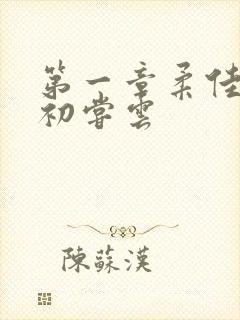 第一章柔佳
初尝云
陳蘇漢